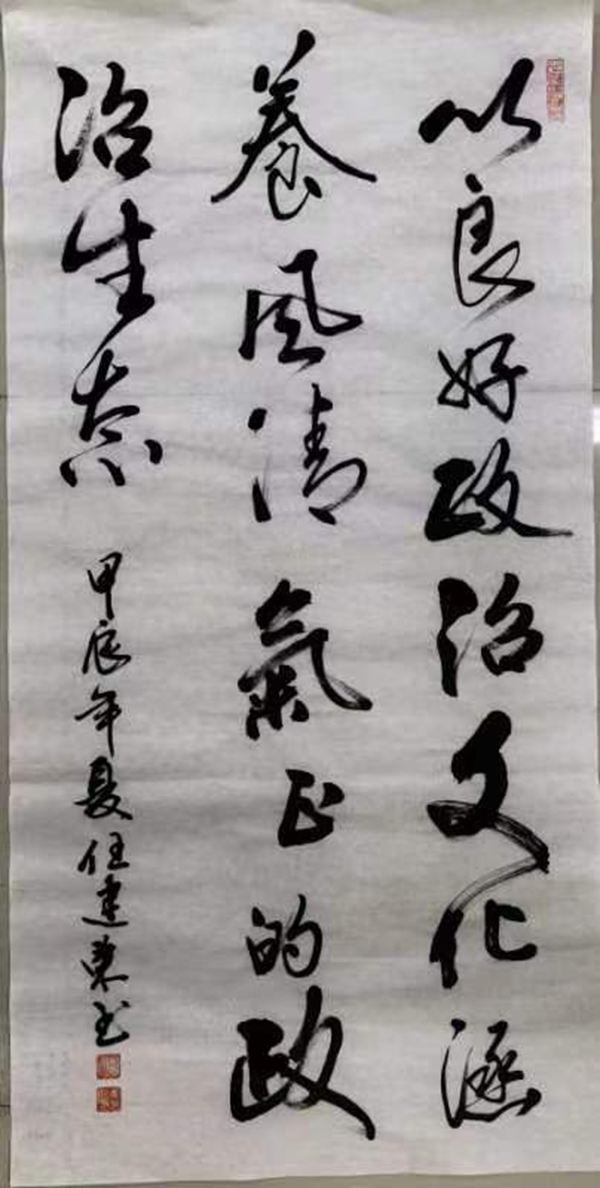 以良好政治文化涵
養風清氣正的政
治生态
甲辰年夏任建東书